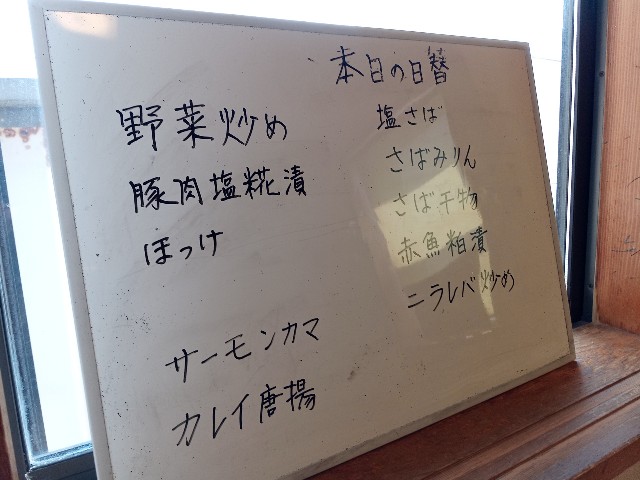 本日の日替
野菜炒め
豚肉塩糀漬
ほっけ
サーモンカマ
カレイ唐揚
塩さば
さばみりん
さば干物
赤魚粕漬
ニラレバ炒め